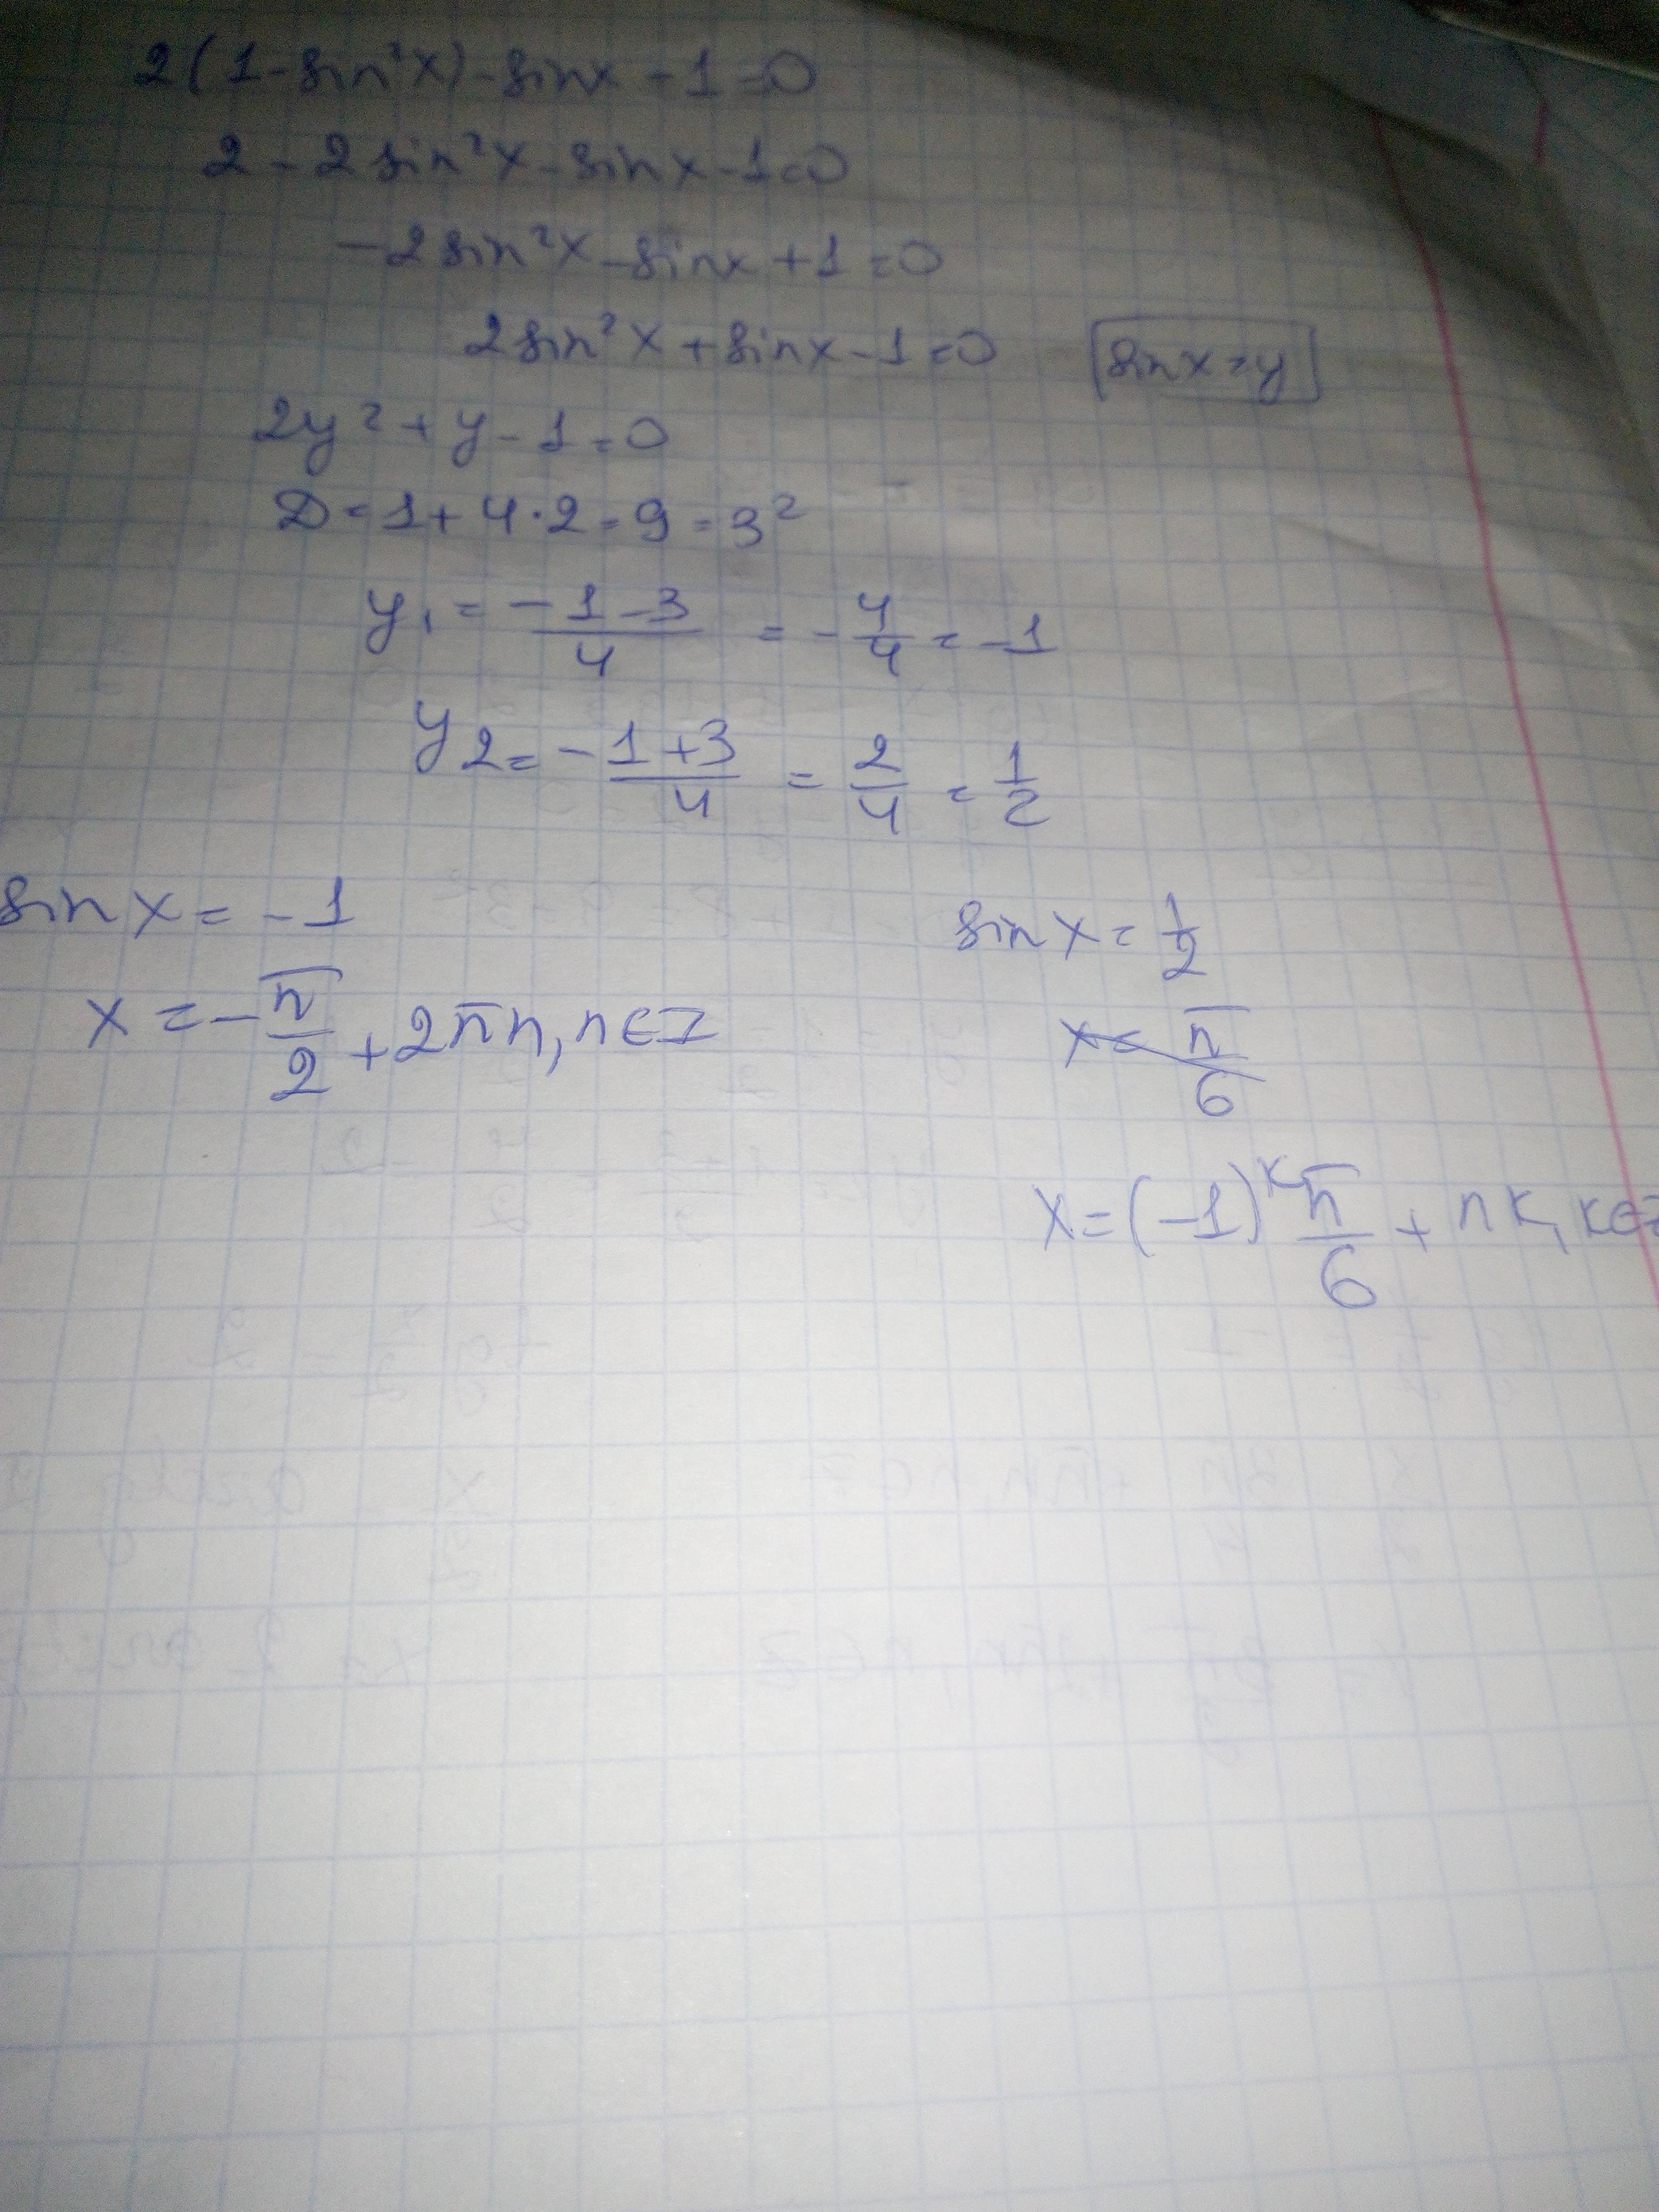 2(1-sin²x)-sinx-1=0
2-2sin²x-sinx-1=0
-2sin²x-sinx+1=0
2sin²x+sinx-1=0 sinx=y
2y²+y-1=0
D=1+4·2=9=3²
y₁=(-1-3)/4=-4/4=-1
y₂=(-1+3)/4=2/4=1/2
sinx=-1 sinx=1/2
x=-π/2+2πn, n∈Z x=π/6
x=(-1)ᵏπ/6+πk, k∈Z